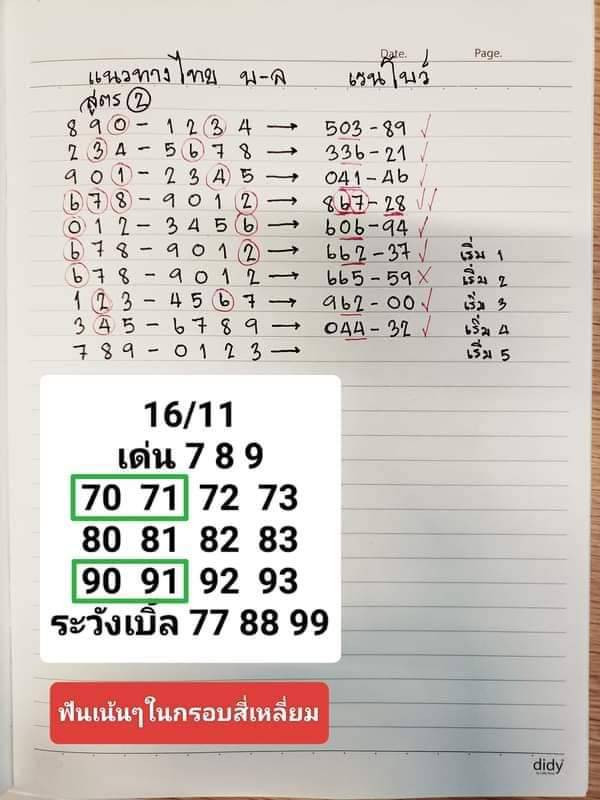 Date. Page.
แนวทางไทย บ-ล เรนโบว์
สูตร 2
890-1234 → 503-89 ✓
234-5678 → 336-21 ✓
901-2345 → 041-46 ✓
678-9012 → 867-28 ✓✓
012-3456 → 606-94 ✓
678-9012 → 662-37 ✓ เริ่ม 1
678-9012 → 665-59 X เริ่ม 2
123-4567 → 962-00 ✓ เริ่ม 3
345-6789 → 044-32 ✓ เริ่ม 4
789-0123 → เริ่ม 5
16/11
เด่น 7 8 9
70 71 72 73
80 81 82 83
90 91 92 93
ระวังเบิ้ล 77 88 99
ฟันเน้นๆในกรอบสี่เหลี่ยม
didy